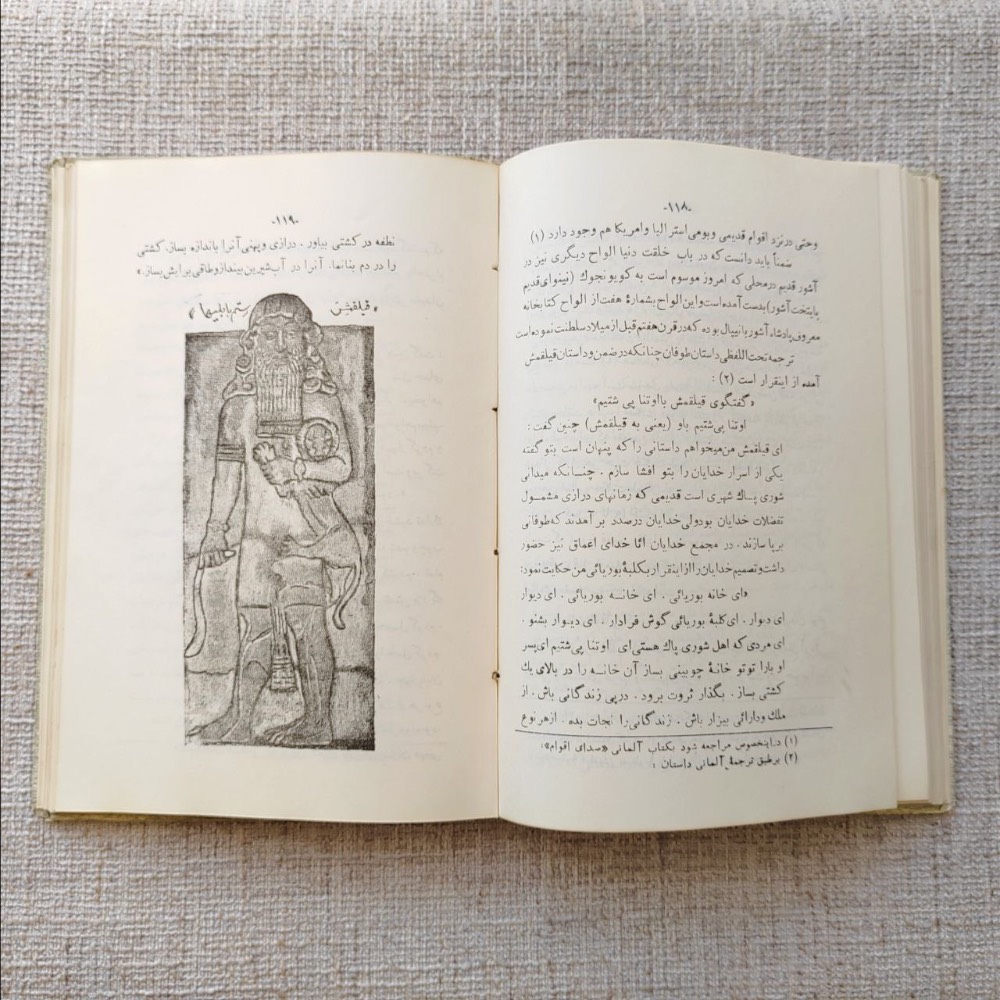 ۰۱۱۸۰
وحتی در نزد اقوام قدیمی و بومی استرالیا و امریکا هم وجود دارد (۱)
ضمناً باید دانست که در باب خلقت دنیا الواح دیگری نیز در
آشور قدیم در محلی که امروز موسوم است به کویونجوك (نینوای قدیم
پایتخت آشور) بدست آمده است و این الواح بشمارهٔ هفت از الواح کتابخانه
معروف پادشاه آشور بانیپال بوده که در قرن هفتم قبل از میلاد سلطنت نموده است
ترجمه تحت اللفظی داستان طوفان چنانکه در ضمن و داستان قیلقمش
آمده از اینقرار است (۲) :
«گفتگوی قیلقمش با اوتنا پی شتیم»
اوتنا پی شتیم باو (یعنی به قیلقمش) چنین گفت :
ای قیلقمش من میخواهم داستانی را که پنهان است بتو گفته
یکی از اسرار خدایان را بتو افشا سازم . چنسانکه میدانی
شوری پساك شهری است قدیمی که زمانهای درازی مشمسول
تفضلات خدایان بود ولی خدایان درصدد بر آمدند که طوفانی
برپا سازند . در مجمع خدایان ائا خدای اعماق نیز حضور
داشت و تصمیم خدایان را از اینقرار بکلبهٔ بوریائی من حکایت نمود:
«ای خانه بوریائی . ای خانسه بوریائی . ای دیوار
ای دیوار . ای کلبهٔ بوریائی گوش فرادار . ای دیوار بشنو .
ای مردی که اهل شوری پاك هستی ای اوتنا پی شتیم ای پسر
او بارا توتو خانهٔ چوبینی بساز آن خانسه را در بالای یك
کشتی بساز . بگذار ثروت برود . در پی زندگانی باش . از
ملك و دارائی بیزار باش . زندگانی را نجات بده . از هر نوع
(۱) در اینخصوص مراجعه شود بکتاب آلمانی «صدای اقوام»:
(۲) بر طبق ترجمهٔ آلمانی داستان :
۰۱۱۹۰
نطفه در کشتی بیاور . درازی و پهنی آنرا باندازه بساز. کشتی
را در دم بنانما. آنرا در آب شیرین بینداز و طاقی برایش بساز.»
«قیلقمیش رستم بابلیها»